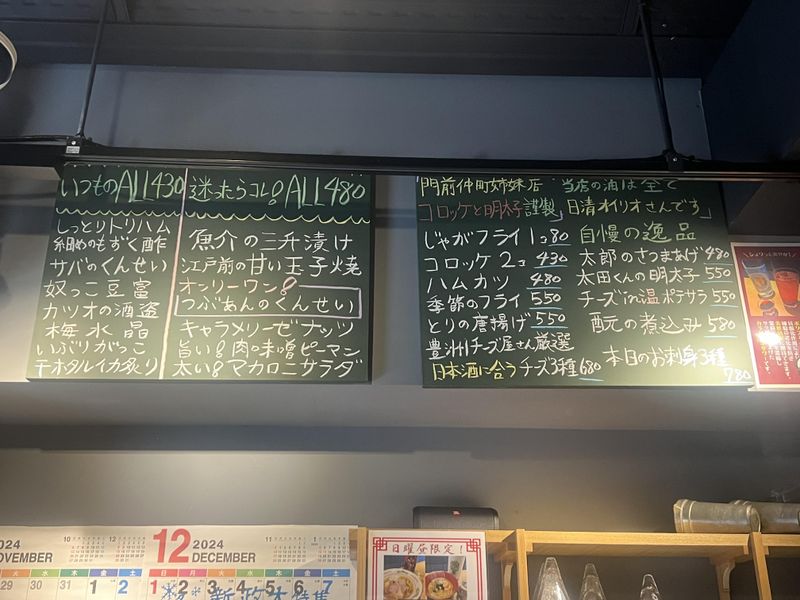 いつものALL430
しっとりトリハム
細めのもずく酢
サバのくんせい
奴っこ豆富
カツオの酒盗
梅水晶
いぶりがっこ
干ホタルイカ炙り
迷ったらコレ!ALL480
魚介の三升漬け
江戸前の甘い玉子焼
オンリーワン!
つぶあんのくんせい
キャラメリーゼナッツ
旨い!肉味噌ピーマン
太い!マカロニサラダ
門前仲町姉妹店
コロッケと明太子謹製」
じゃがフライ1コ80
コロッケ2コ430
ハムカツ 480
季節のフライ550
とりの唐揚げ550
豊洲チーズ屋さん厳選
日本酒に合うチーズ3種680
当店の油は全て
日清オイリオさんです」
自慢の逸品
太郎のさつまあげ480
太田くんの明太子550
チーズinの温ポテサラ550
酛の煮込み580
本日のお刺身3種
780
2024
NOVEMBER
火 水 木 金 土
29 30 31 1 2
12 2024
DECEMBER
日 月 火 水 木 金 土
1 2 3 4 5 6 7
日曜昼限定!